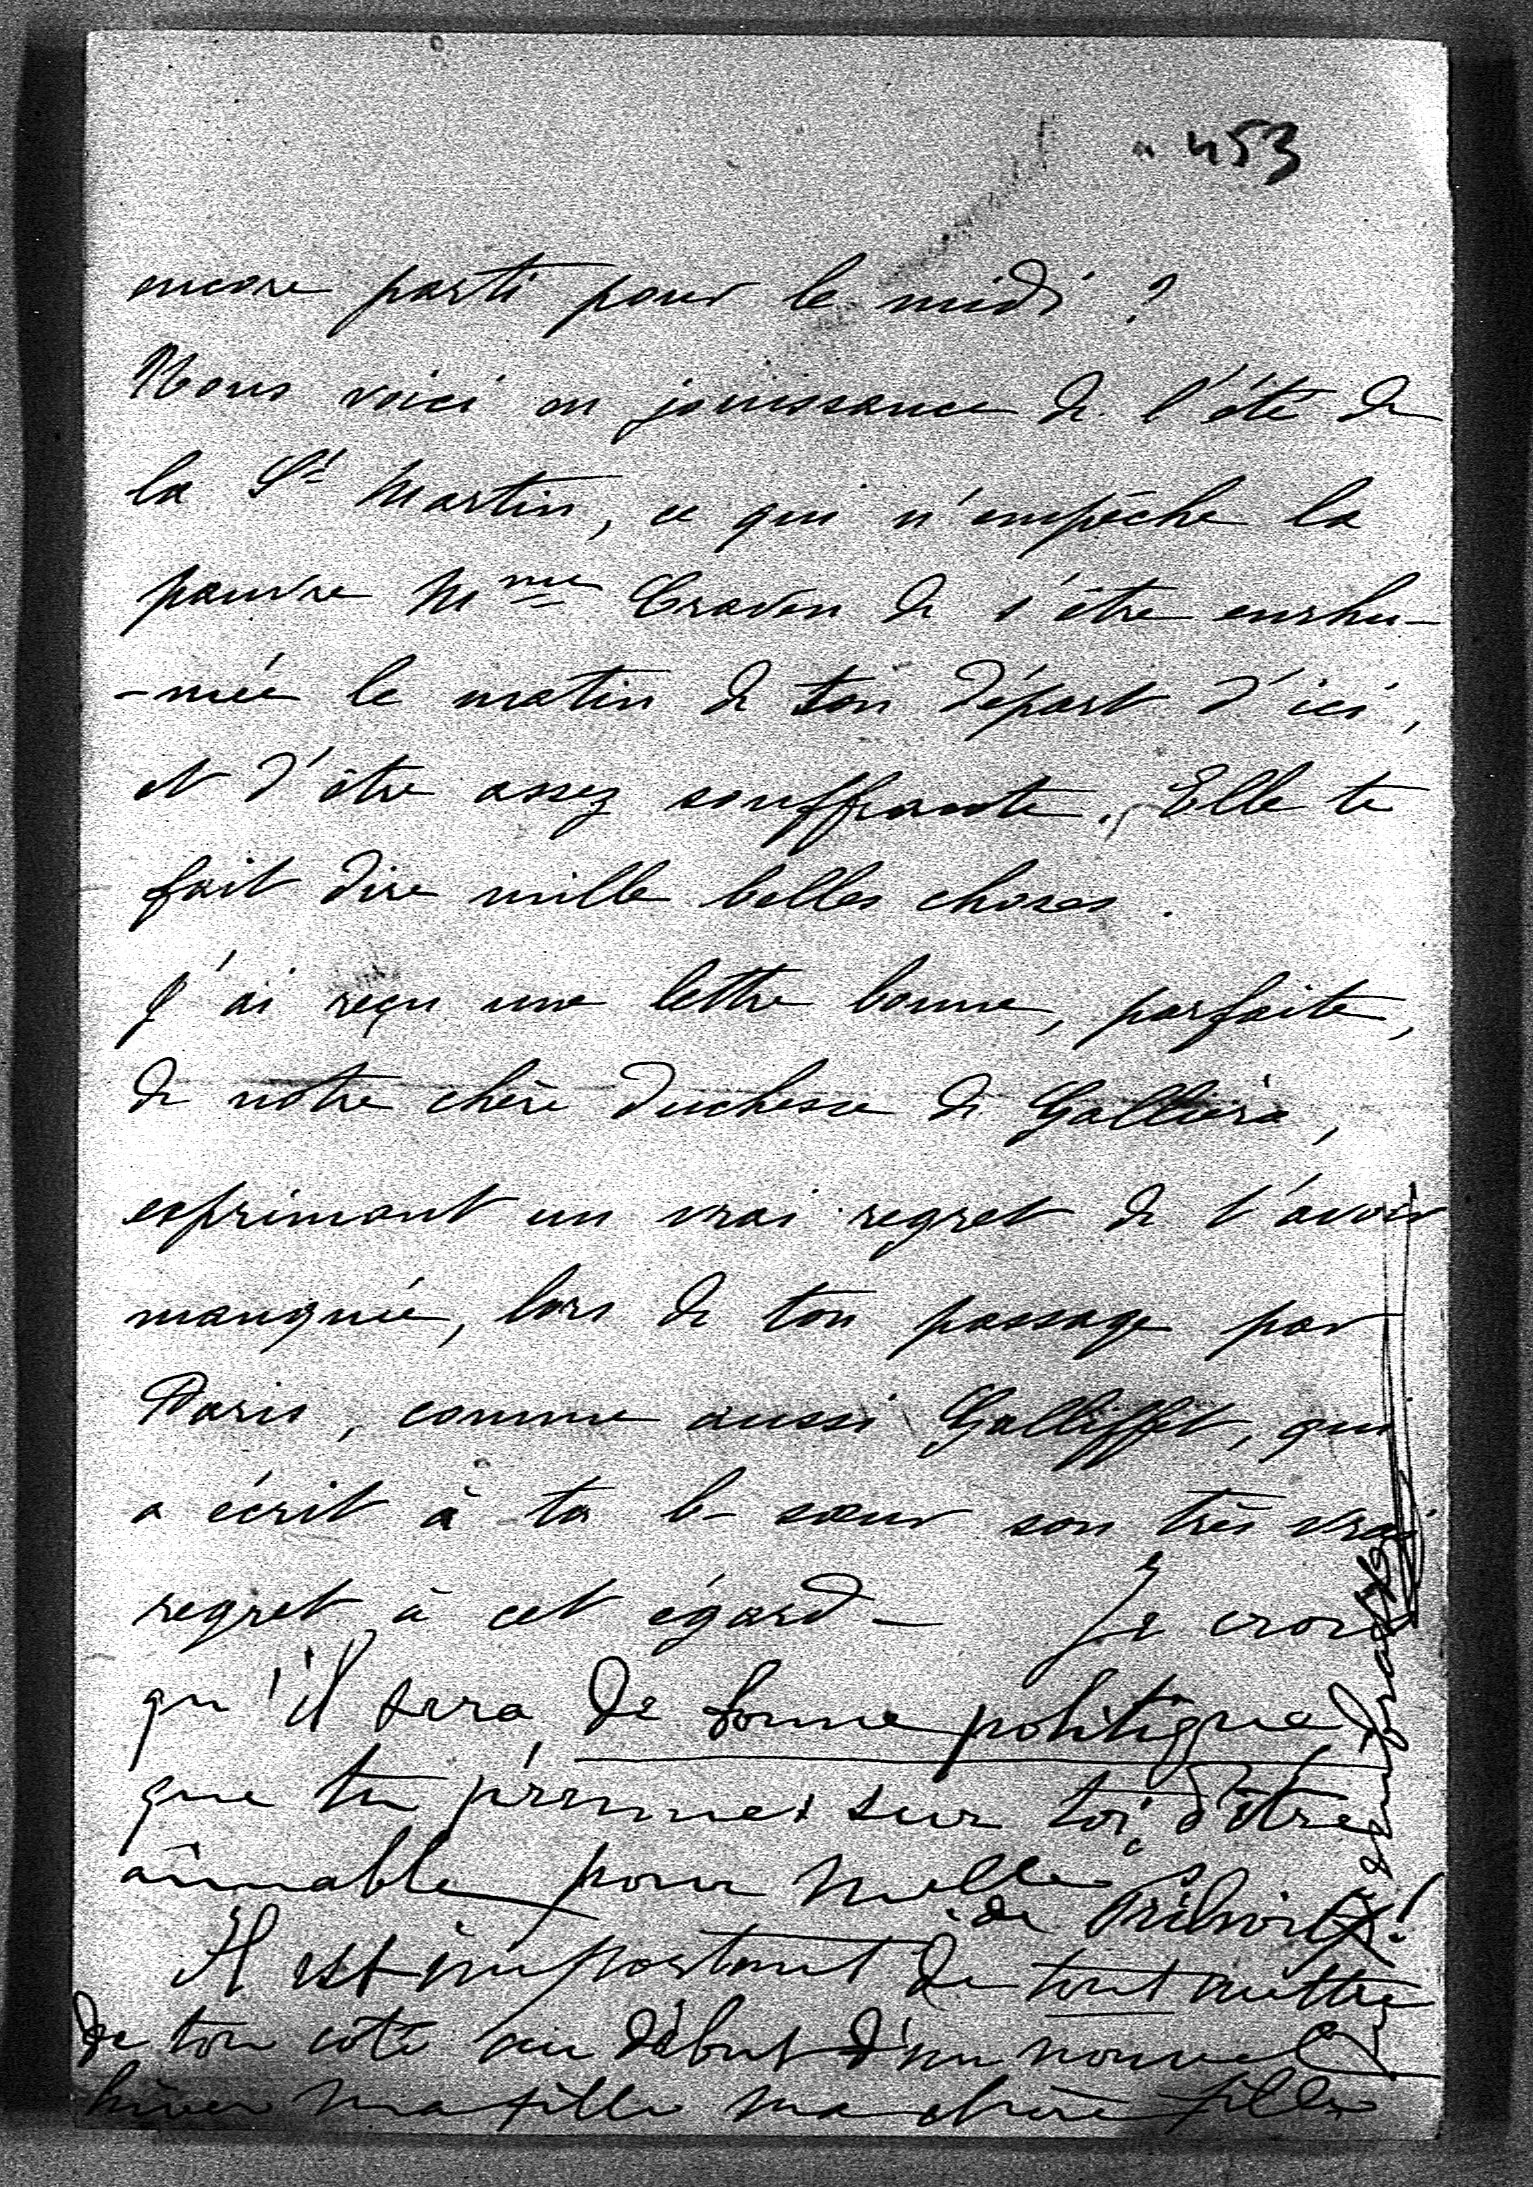 453
encore parti pour le midi ?
Nous voici en jouissance de l'été de
la St Martin, ce qui n'empêche la
pauvre Mme Craven de s'être enrhu-
-mée le matin de ton départ d'ici,
et d'être assez souffrante. Elle te
fait dire mille belles choses.
J'ai reçu une lettre bonne, parfaite,
de notre chère Duchesse de Galliera,
exprimant un vrai regret de t'avoir
manquée, lors de ton passage par
Paris, comme aussi Galliffet, qui
a écrit à ta b- sœur son très vrai
regret à cet égard - Je crois
qu'il sera de bonne politique
que tu prennes sur toi d'être
aimable pour Melle
de
Il est important de tout mettre
de ton côté au début d'un nouvel
hiver ma fille ma chère fille